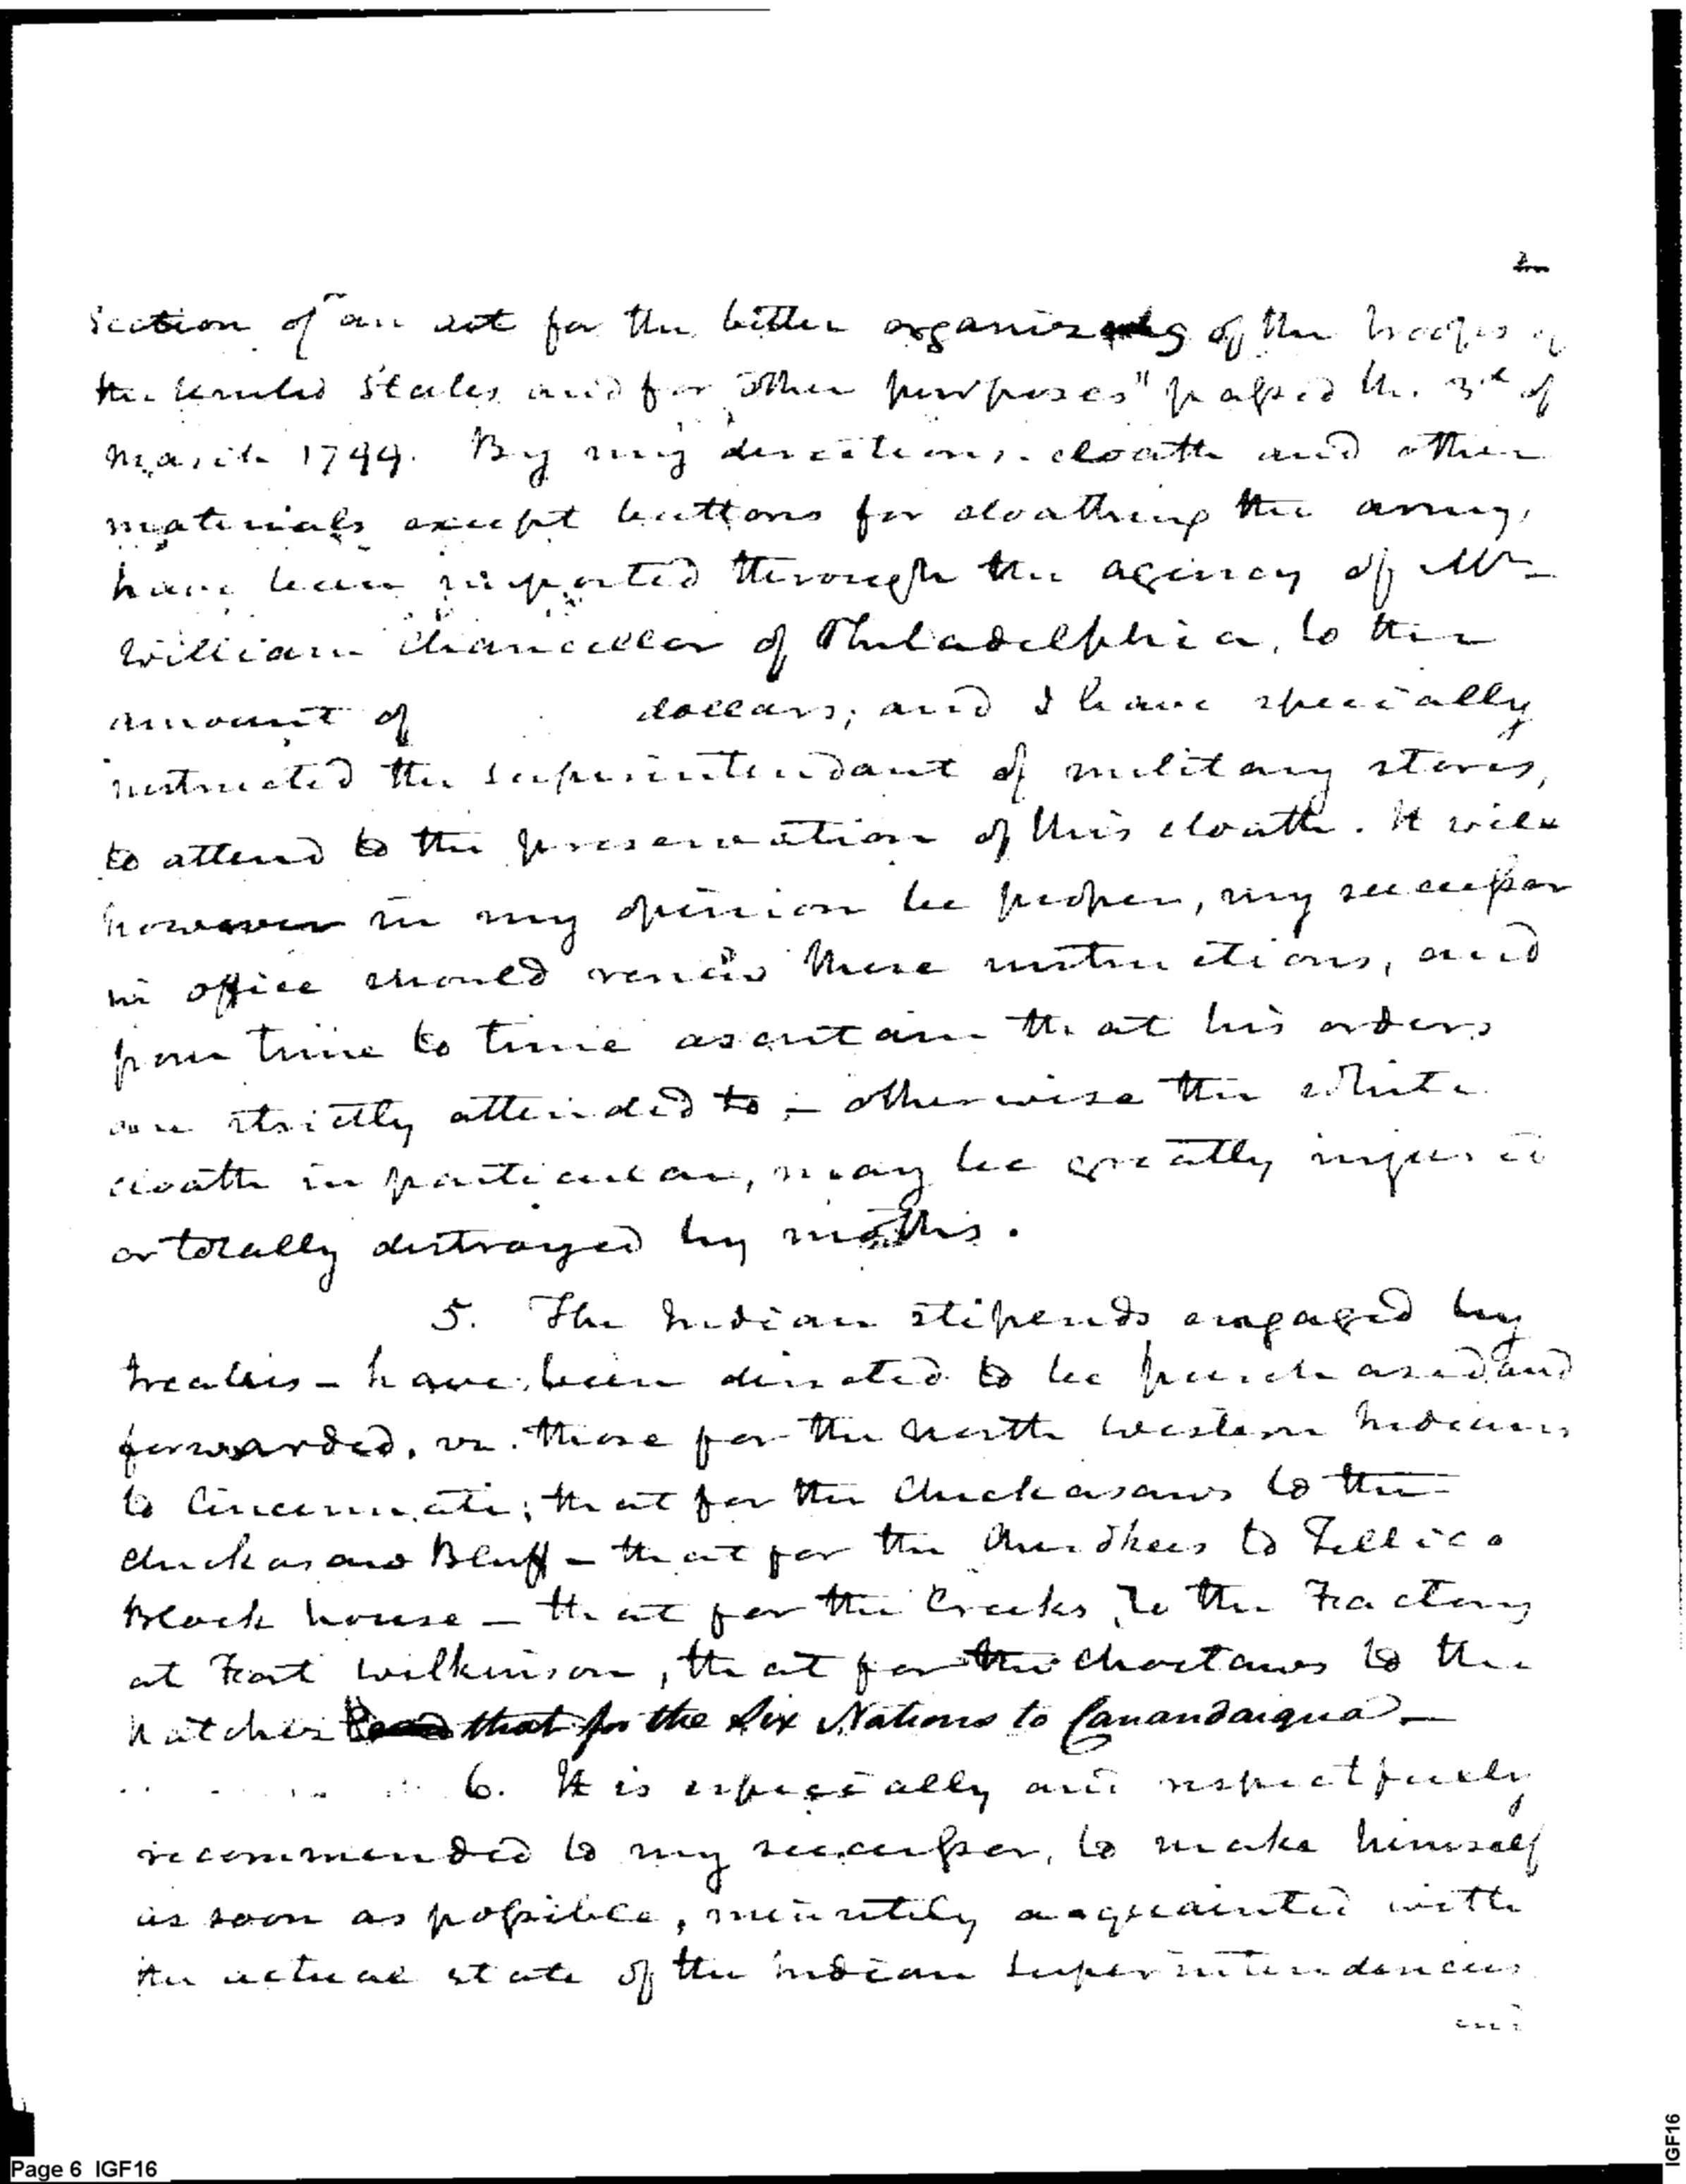 section of "an act for the better organizing of the troops of
the United States and for other purposes" passed the 3d of
March 1799. By my directions cloath and other
materials except buttons for cloathing the army,
have been imported through the agency of Mr
William Chancellor of Philadelphia, to the
amount of dollars; and I have specially
instructed the superintendant of military stores,
to attend to the preservation of this cloath. It will
however in my opinion be proper, my successor
in office should renew these instructions, and
from time to time ascertain that his orders
are strictly attended to - otherwise the white
cloath in particular, may be greatly injured
or totally destroyed by moths.
5. The Indian stipends engaged by
treaties - have been directed to be purchased and
forwarded, vz. those for the North Western Indians
to Cincinnati; that for the Chickasaws to the
Chickasaw Bluff - that for the Cherokees to Tellico
Block house - that for the Creeks, to the Factory
at Fort Wilkinson, that for the Choctaws to the
Natches that for the Six Nations to Canandaigua -
6. It is especially and respectfully
recommended to my successor, to make himself
as soon as possible, minutely acquainted with
the actual state of the Indian Superintendencies
and
Page 6 IGF16
IGF16